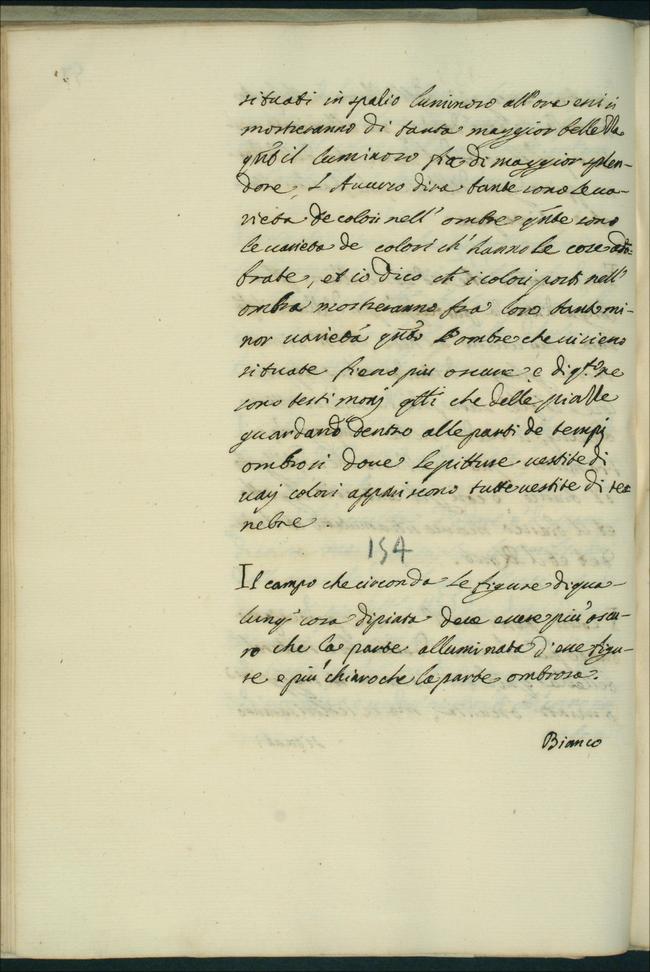 situati in spatio luminoso all'ora essi si
mostreranno di tanta maggior bellezza
qñto il luminoso fia di maggior splen-
dore, L'Auuersº dira tante sono le ua-
rieta de colori nell' ombre qñte sono
le uarieta de colori ch' hanno le cose adõ-
brate, et io dico ch' i colori posti nell'
ombra mostreranno fra loro tanto mi-
nor uarietá qñto l'ombre che ui sieno
situate fieno piu oscure e di q.to ne
sono testimonj qlli che delle piazze
guardano dentro alle parti de tempj
ombrosi doue le pitture uestite di
uarj colori appariscono tutte uestite di te-
nebre.
154
Il campo che circonda le figure di qua-
lunq; cosa dipinta deue essere piu oscu-
ro che la parte alluminata d'esse figu-
re e piu chiaro che la parte ombrosa.
Bianco